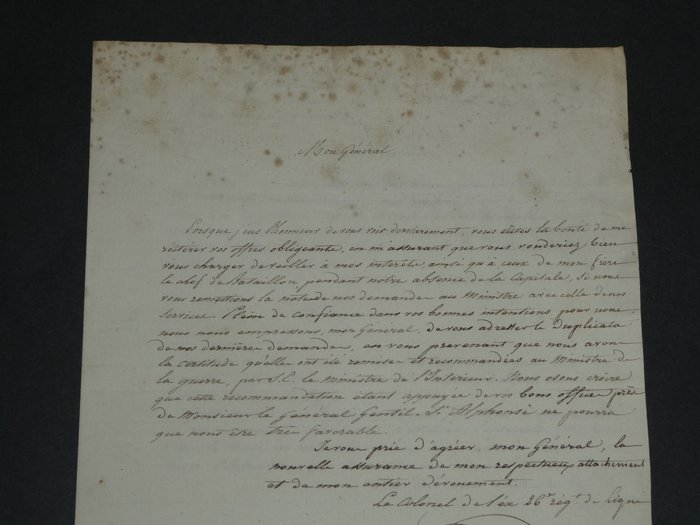 Mon Général
Lorsque j'eus l'honneur de vous voir dernièrement, vous eûtes la bonté de me
réitérer vos offres obligeante, en m'assurant que vous voudriez bien
vous charger de veiller à mes intérêts ainsi qu'à ceux de mon frère
le chef de Bataillon pendant notre absence de la Capitale, si nous
vous remettions la note de nos demande au Ministre avec celle de nos
services. Plein de confiance dans vos bonnes intentions pour nous
nous nous empressons, mon Général, de vous adresser le Duplicata
de nos dernière demande, en vous prévenant que nous avons
la certitude qu'elle ont été remise et recommandées au Ministre de
la guerre, par S.E. le Ministre de l'Intérieur. Nous osons croire
que cette recommandation étant appuyée de vos bons office près
de Monsieur le Général Gentil St Alphonse ne pourra
que nous être très favorable.
Je vous prie d'agréer, mon Général, la
nouvelle assurance de mon respectueux attachement
et de mon entier dévouement.
Le Colonel de l'ex 26e régt de Ligne